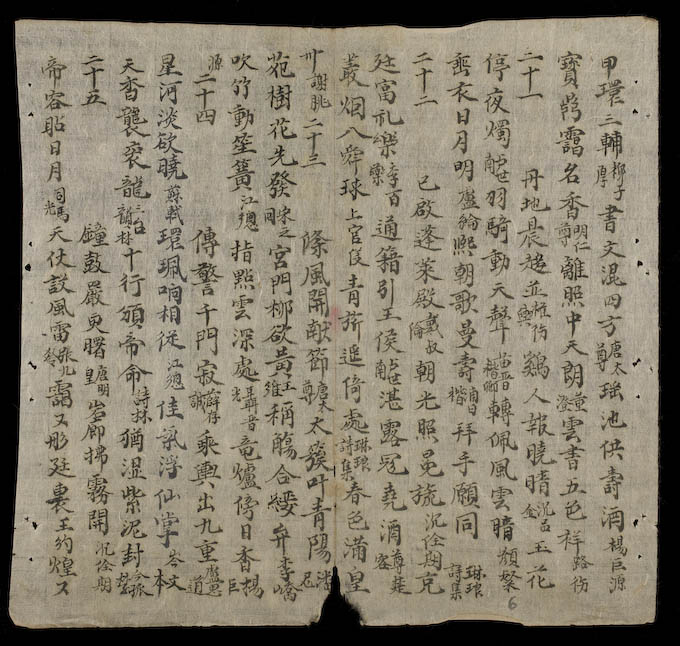 甲環三輔柳子厚書文混四方唐太尊瑶池供壽酒楊巨源
寶鼎靄名香明仁尊離照中天朗雲書五色祥
二十一 丹地晨趨並鷄人報曉晴玉花
停夜燭羽騎動天聲轉佩風雲晴
垂衣日月明盧綸熙朝歌曼壽拜手願同琳琅詩集
二十二 已啟蓬萊殿戴叔倫朝光照冕旒沉佺期克
廷富礼樂李百藥通籍引王侯湛露冠堯酒
叢烟八舜球上官仪青旂遥倚處琳琅詩集春色滿皇
州謝朓二十三 條風開献節唐太尊太簇叶青陽潘尼
苑樹花先發宋之问宮門柳欲黃王維稱觴合緌弁李嶠
吹竹動笙簧江總指點雲深處竜爐傍日香楊巨
源二十四 傳警千門寂薛存誠乘輿出九重盧思道
星河淡欲曉環珮响相從江總佳氣浮仙掌岑文本
天香襲衮龍十行頒帝命詩林猶湿紫泥封
二十五 鐘鼓嚴更曙唐明皇岩廊拂霧開沉佺期
帝容昭日月司馬光天仗設風雷靄又彤廷裏王約煌又
6